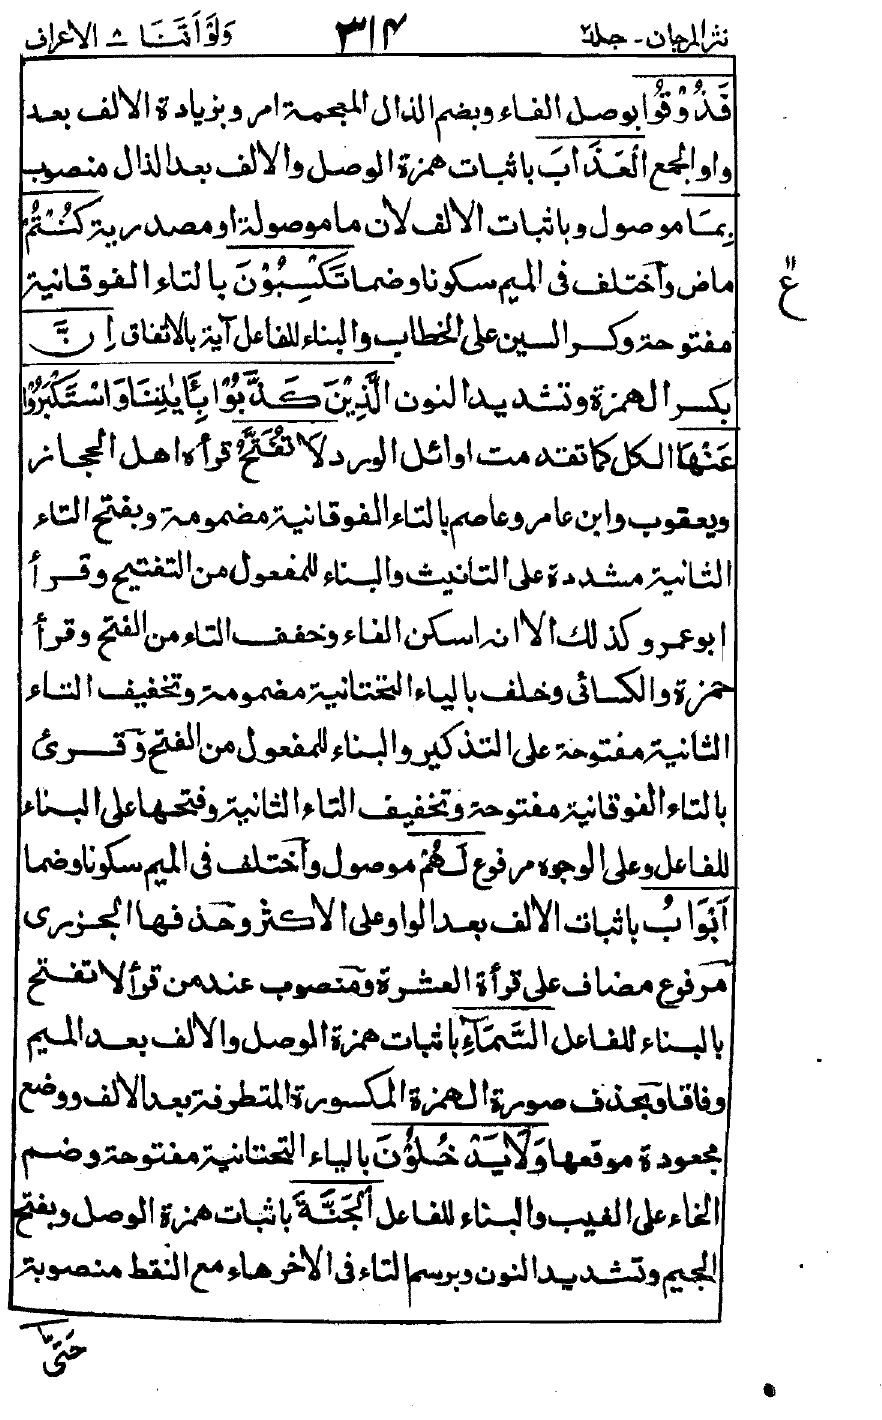 نثر المرجان - جلد ٢ ٣١٤ وَلَوْ أَنَّنَا ٨ الاعراف
فَذُوْقُوا بوصل الفاء وبضم الذال المعجمة امر وبزيادة الالف بعد
واو الجمع الْعَذَابَ باثبات همزة الوصل والالف بعد الذال منصوب
بِمَا موصول وباثبات الالف لان ما موصولة او مصدرية كُنْتُمْ
ماض واختلف فى الميم سكونا وضما تَكْسِبُوْنَ بالتاء الفوقانية
مفتوحة وكسر السين على الخطاب والبناء للفاعل آية بالاتفاق اِنَّ
بكسر الهمزة وتشديد النون الَّذِيْنَ كَذَّبُوْا بِـَٔايٰتِنَا وَاسْتَكْبَرُوْا
عَنْهَا الكل كما تقدمت اوائل الورد لَا تُفَتَّحُ قرأه اهل الحجاز
ويعقوب وابن عامر وعاصم بالتاء الفوقانية مضمومة وبفتح التاء
الثانية مشددة على التانيث والبناء للمفعول من التفتيح وقرأ
ابو عمرو كذلك الا انه اسكن الفاء وخفف التاء من الفتح وقرأ
حمزة والكسائى وخلف بالياء التحتانية مضمومة وتخفيف التاء
الثانية مفتوحة على التذكير والبناء للمفعول من الفتح وقرئ
بالتاء الفوقانية مفتوحة وتخفيف التاء الثانية وفتحها على البناء
للفاعل وعلى الوجوه مرفوع لَهُمْ موصول واختلف فى الميم سكونا وضما
اَبْوَابُ باثبات الالف بعد الواو على الاكثر وحذفها الجزرى
مرفوع مضاف على قرأة العشرة ومنصوب عند من قرأ لا تفتح
بالبناء للفاعل السَّمَآءِ باثبات همزة الوصل والالف بعد الميم
وفاقا وبحذف صورة الهمزة المكسورة المتطرفة بعد الالف ووضع
مجعودة موقعها وَلَا يَدْخُلُوْنَ بالياء التحتانية مفتوحة وضم
الخاء على الغيب والبناء للفاعل الْجَنَّةَ باثبات همزة الوصل وبفتح
الجيم وتشديد النون وبرسم التاء فى الاخر هاء مع النقط منصوبة
حَتّٰى